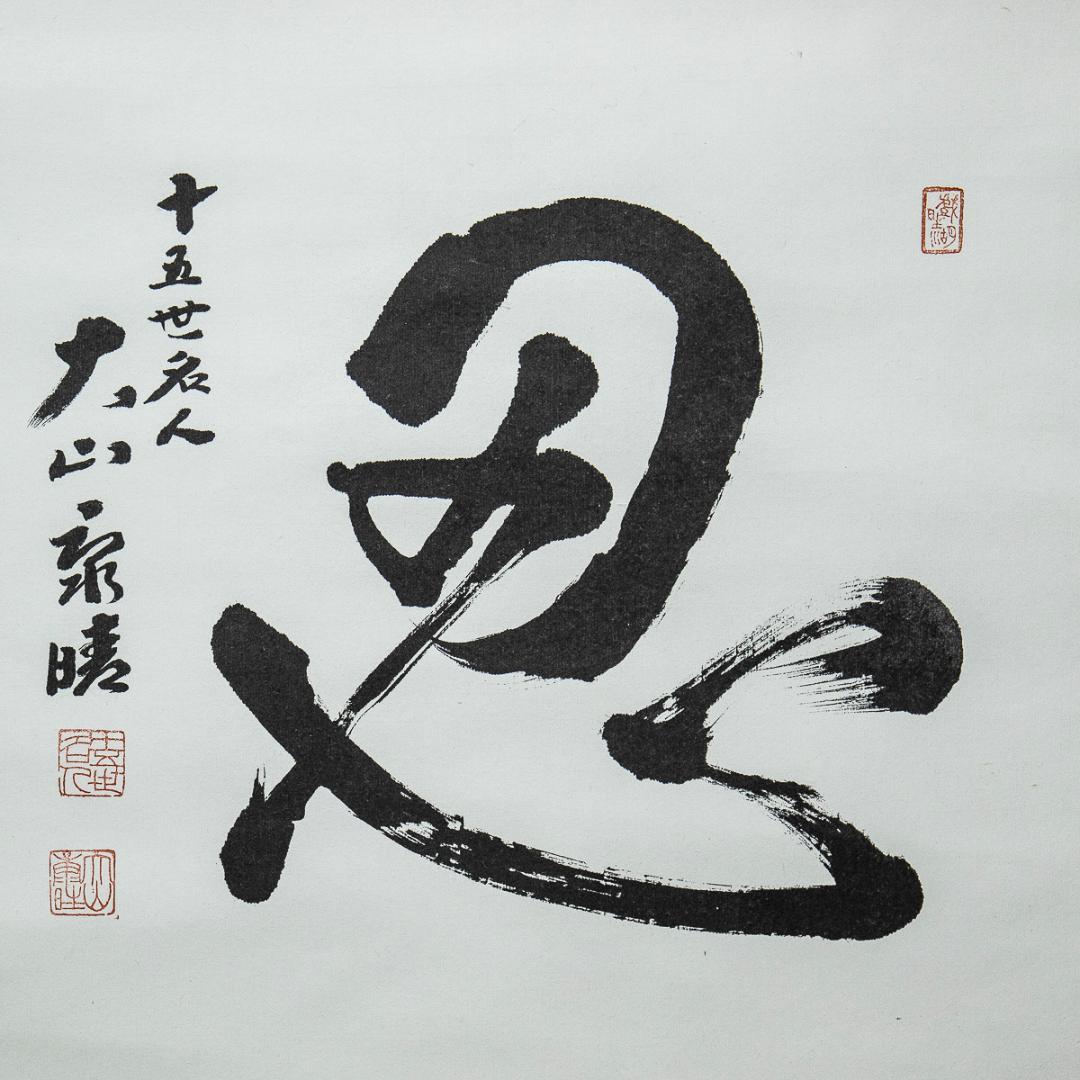 忍
十五世名人
大山康晴